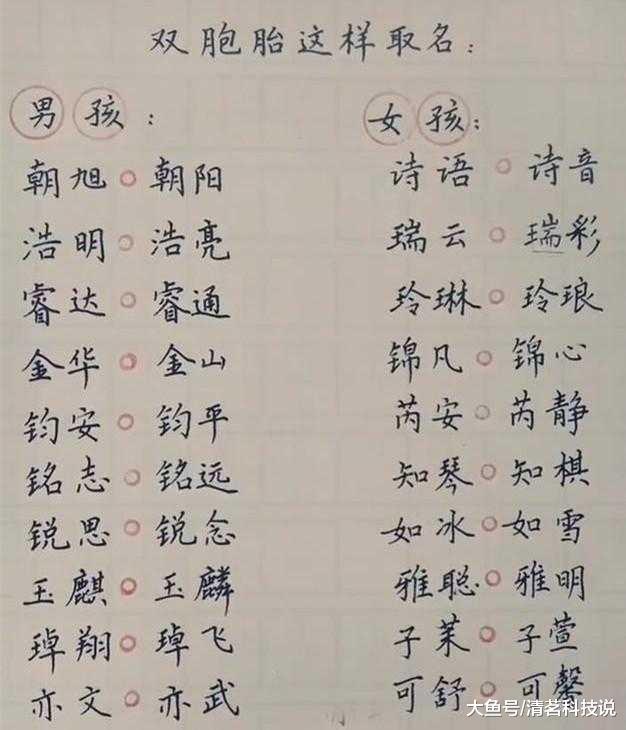 双胞胎这样取名：
男孩：
朝旭。朝阳
浩明。浩亮
睿达。睿通
金华。金山
钧安。钧平
铭志。铭远
锐思。锐念
玉麒。玉麟
琸翔。琸飞
亦文。亦武
女孩：
诗语。诗音
瑞云。瑞彩
玲琳。玲琅
锦凡。锦心
芮安。芮静
知琴。知棋
如冰。如雪
雅聪。雅明
子茉。子萱
可舒。可馨
大鱼号/清茗科技说